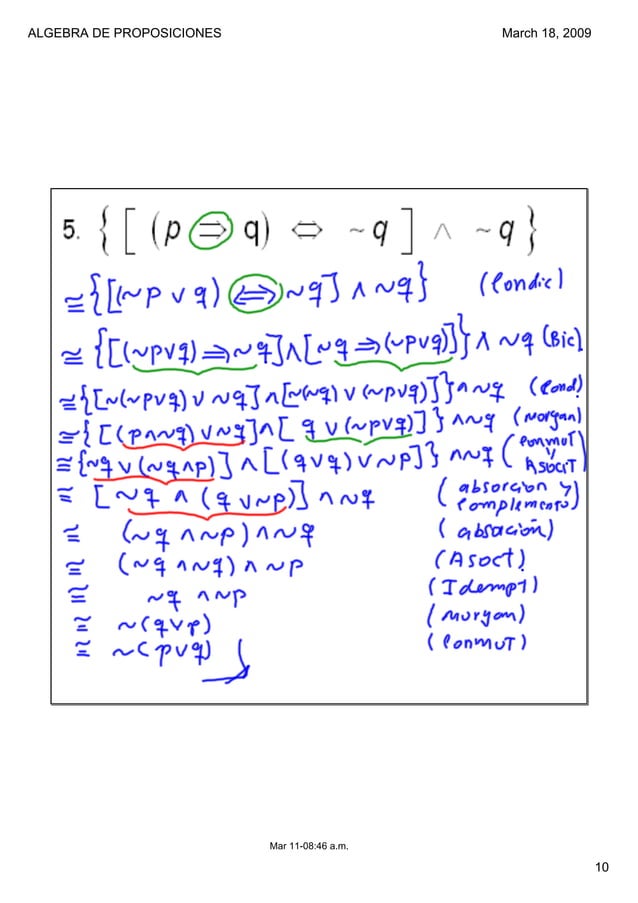 ALGEBRA DE PROPOSICIONES March 18, 2009
5. { [ (p ⇒ q) ⇔ ~q ] ∧ ~q }
≅ {[(~p ∨ q) ⇔ ~q] ∧ ~q} (Condic)
≅ {[(~p∨q) ⇒ ~q] ∧ [~q ⇒ (~p∨q)]} ∧ ~q (Bic).
≅ {[~(~p∨q) ∨ ~q] ∧ [~(~q) ∨ (~p∨q)]} ∧ ~q (Cond)
≅ {[(p∧~q) ∨ ~q] ∧ [q ∨ (~p∨q)]} ∧ ~q (Morgan)
≅ {~q ∨ (~q∧p)] ∧ [(q∨q) ∨ ~p]} ∧ ~q (Conmut y Asocit)
≅ [~q ∧ (q ∨ ~p)] ∧ ~q (absorcion y complemento)
≅ (~q ∧ ~p) ∧ ~q (absoción)
≅ (~q ∧ ~q) ∧ ~p (Asoct)
≅ ~q ∧ ~p (Idempt)
≅ ~(q∨p) (Morgan)
≅ ~(p∨q) (Conmut)
Mar 11-08:46 a.m.
10